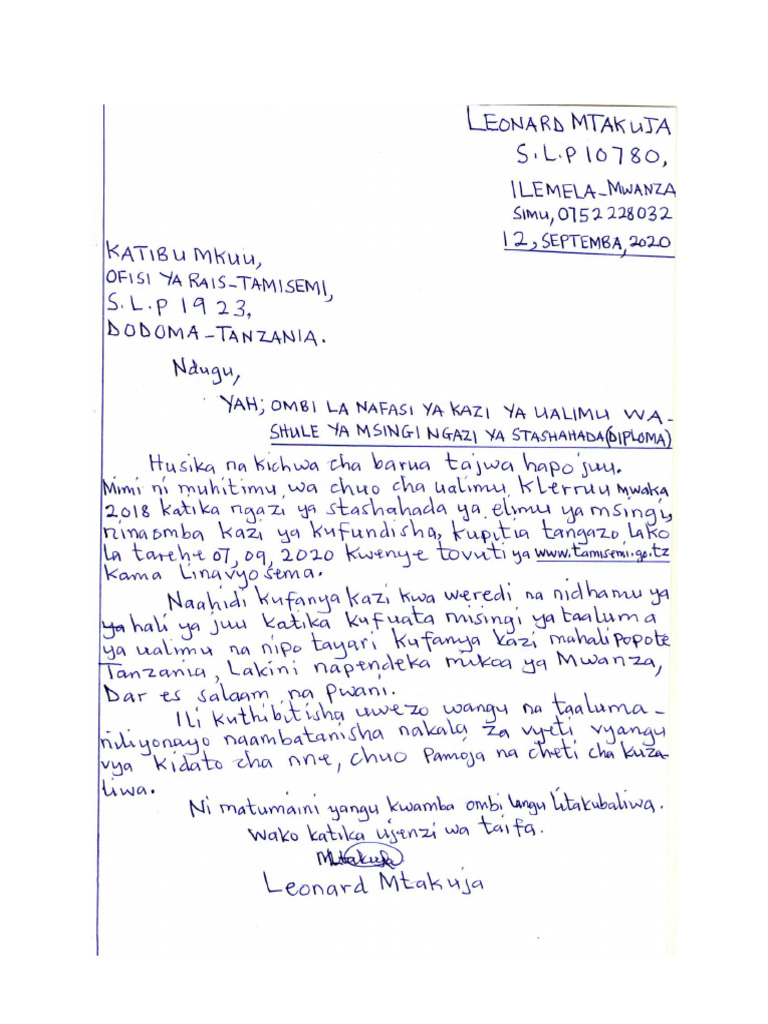 LEONARD MTAKUJA
S.L.P 10780,
ILEMELA-MWANZA
SIMU, 0752228032
12, SEPTEMBA, 2020
KATIBU MKUU,
OFISI YA RAIS-TAMISEMI,
S.L.P 1923,
DODOMA-TANZANIA.
Ndugu,
YAH; OMBI LA NAFASI YA KAZI YA UALIMU WA-
SHULE YA MSINGI NGAZI YA STASHAHADA (DIPLOMA)
Husika na kichwa cha barua tajwa hapo juu.
Mimi ni muhitimu wa chuo cha ualimu Klerruu mwaka
2018 katika ngazi ya stashahada ya elimu ya msingi,
ninaomba kazi ya kufundisha, kupitia tangazo lako
la tarehe 07, 09, 2020 kwenye tovuti ya www.tamisemi.go.tz
kama Linavyosema.
Naahidi kufanya kazi kwa weredi na nidhamu ya
ya hali ya juu katika kufuata misingi ya taaluma
ya ualimu na nipo tayari kufanya kazi mahali popote
Tanzania, Lakini napendeka mikoa ya Mwanza,
Dar es salaam na Pwani.
Ili kuthibitisha uwezo wangu na taaluma-
niliyonayo naambatanisha nakala za vyeti vyangu
vya kidato cha nne, chuo Pamoja na cheti cha kuza-
liwa.
Ni matumaini yangu kwamba ombi langu litakubaliwa.
Wako katika ujenzi wa taifa.
Mtakuja
Leonard Mtakuja